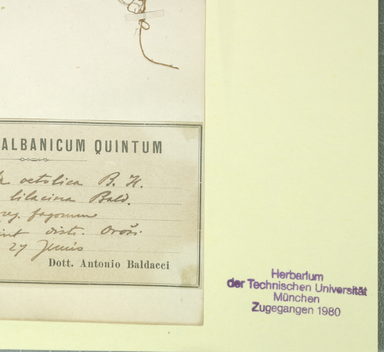 ALBANICUM QUINTUM
aetolica B. H.
lilacina Bald.
reg. fagorum
distr. Oroši
27 Junio
Dott. Antonio Baldacci
Herbarium
der Technischen Universität
München
Zugegangen 1980